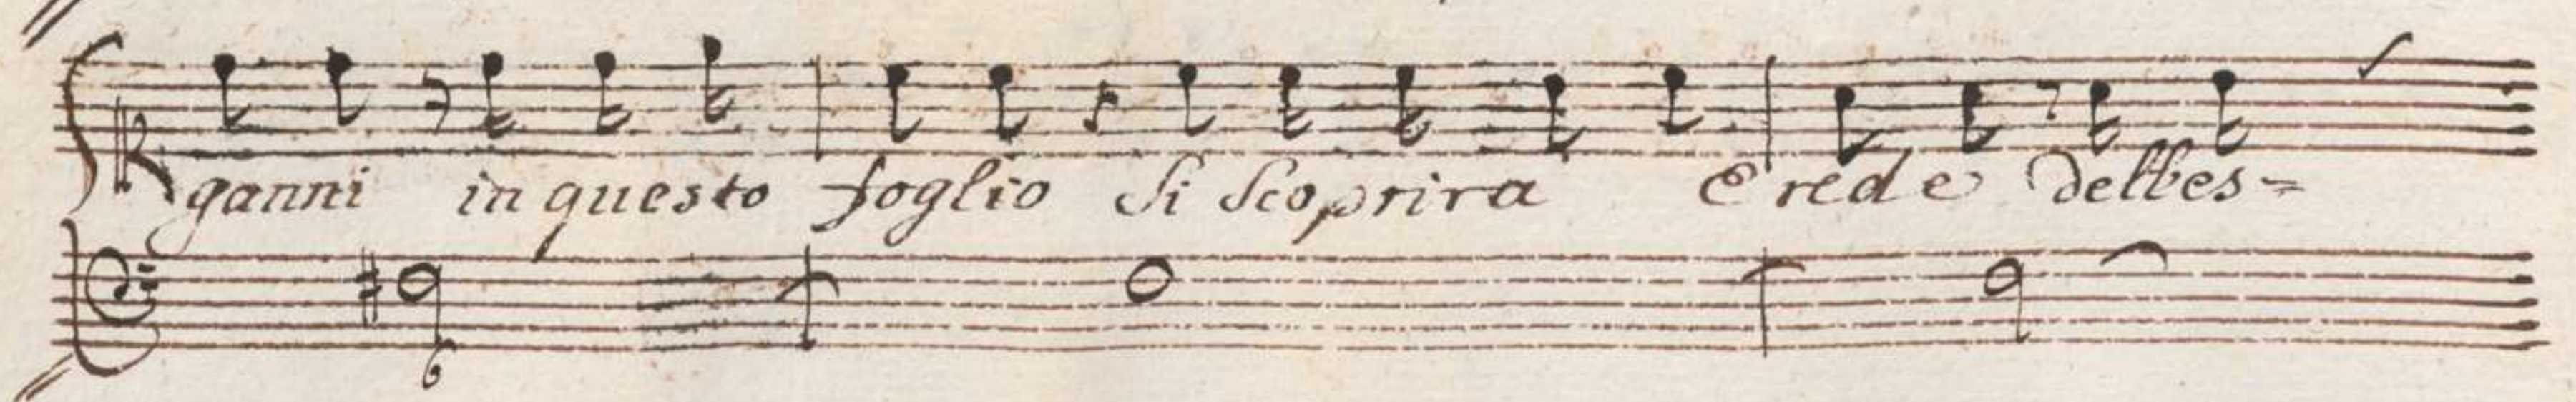 ganni in questo foglio Si Scoprira Erede dell'es=
6